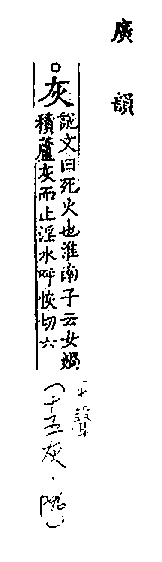 廣韻
灰 說文曰死火也淮南子云女媧
積蘆灰而止淫水呼恢切六
平聲
(十五灰.